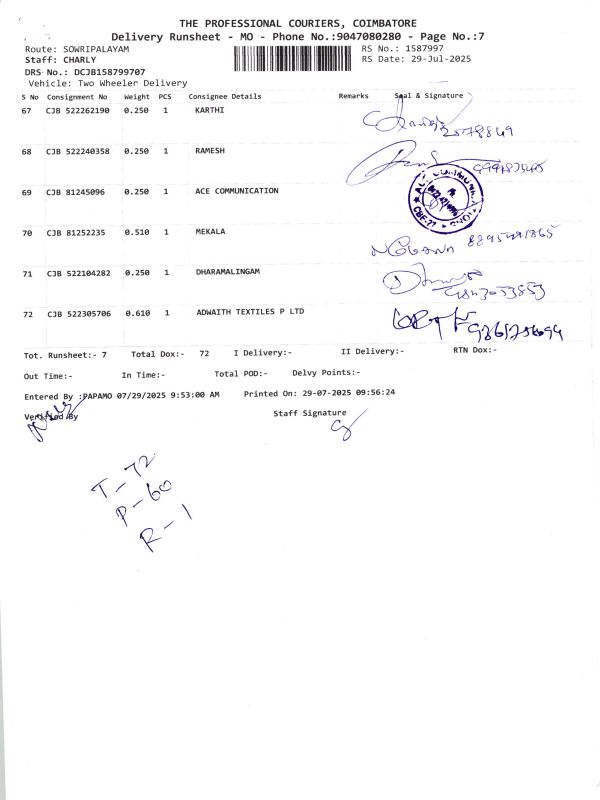 THE PROFESSIONAL COURIERS, COIMBATORE
Delivery Runsheet - MO - Phone No.:9047080280 - Page No.:7
Route: SOWRIPALAYAM RS No.: 1587997
Staff: CHARLY RS Date: 29-Jul-2025
DRS No.: DCJB158799707
Vehicle: Two Wheeler Delivery
S No Consignment No Weight PCS Consignee Details Remarks Seal & Signature
67 CJB 522262190 0.250 1 KARTHI
68 CJB 522240358 0.250 1 RAMESH
69 CJB 81245096 0.250 1 ACE COMMUNICATION
70 CJB 81252235 0.510 1 MEKALA
71 CJB 522104282 0.250 1 DHARAMALINGAM
72 CJB 522305706 0.610 1 ADWAITH TEXTILES P LTD
Tot. Runsheet:- 7 Total Dox:- 72 I Delivery:- II Delivery:- RTN Dox:-
Out Time:- In Time:- Total POD:- Delvy Points:-
Entered By :PAPAMO 07/29/2025 9:53:00 AM Printed On: 29-07-2025 09:56:24
Verified By Staff Signature
T - 72
P - 60
R - 1